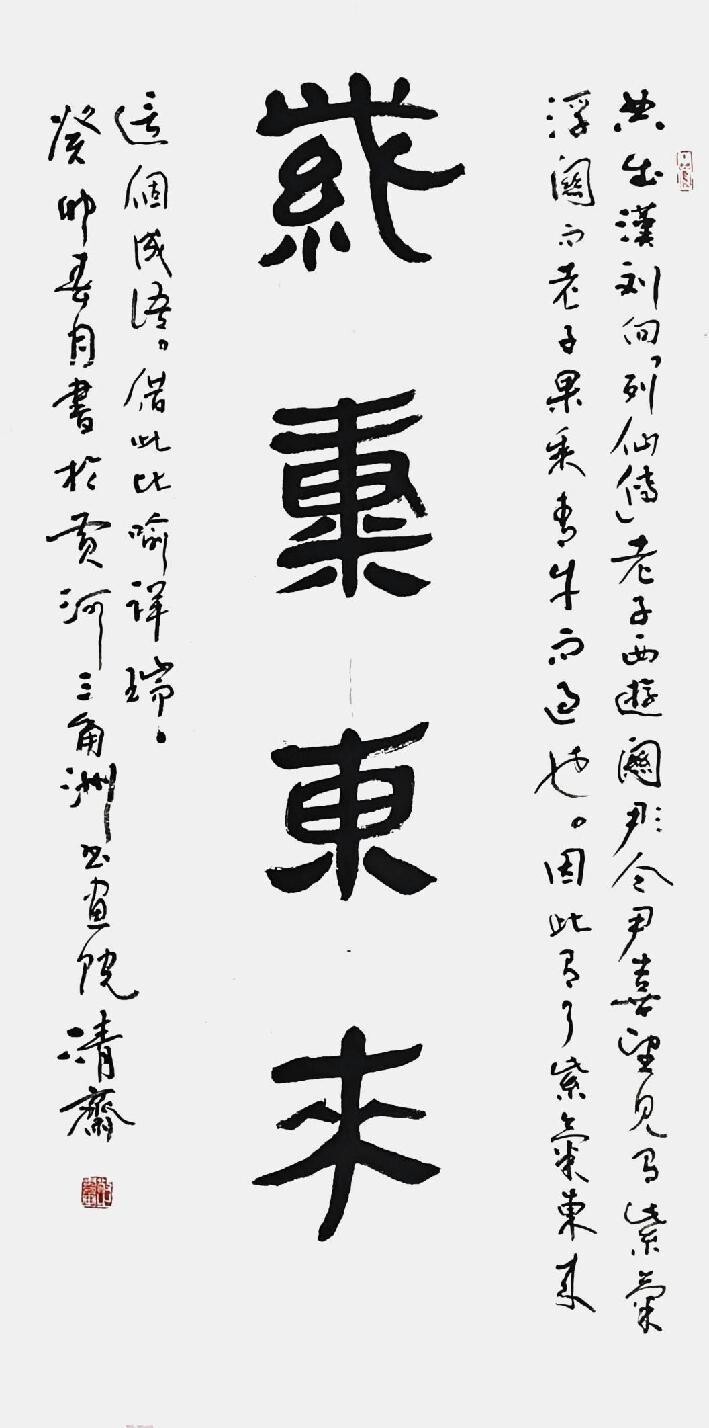 典出漢刘向「列仙傳」老子西遊關令尹喜望見有紫氣
浮關而老子果乘青牛而過也。因此有了紫氣東來
紫氣東來
這個成語。借此比喻祥瑞。
癸卯春月書於黄河三角洲书画院清齋